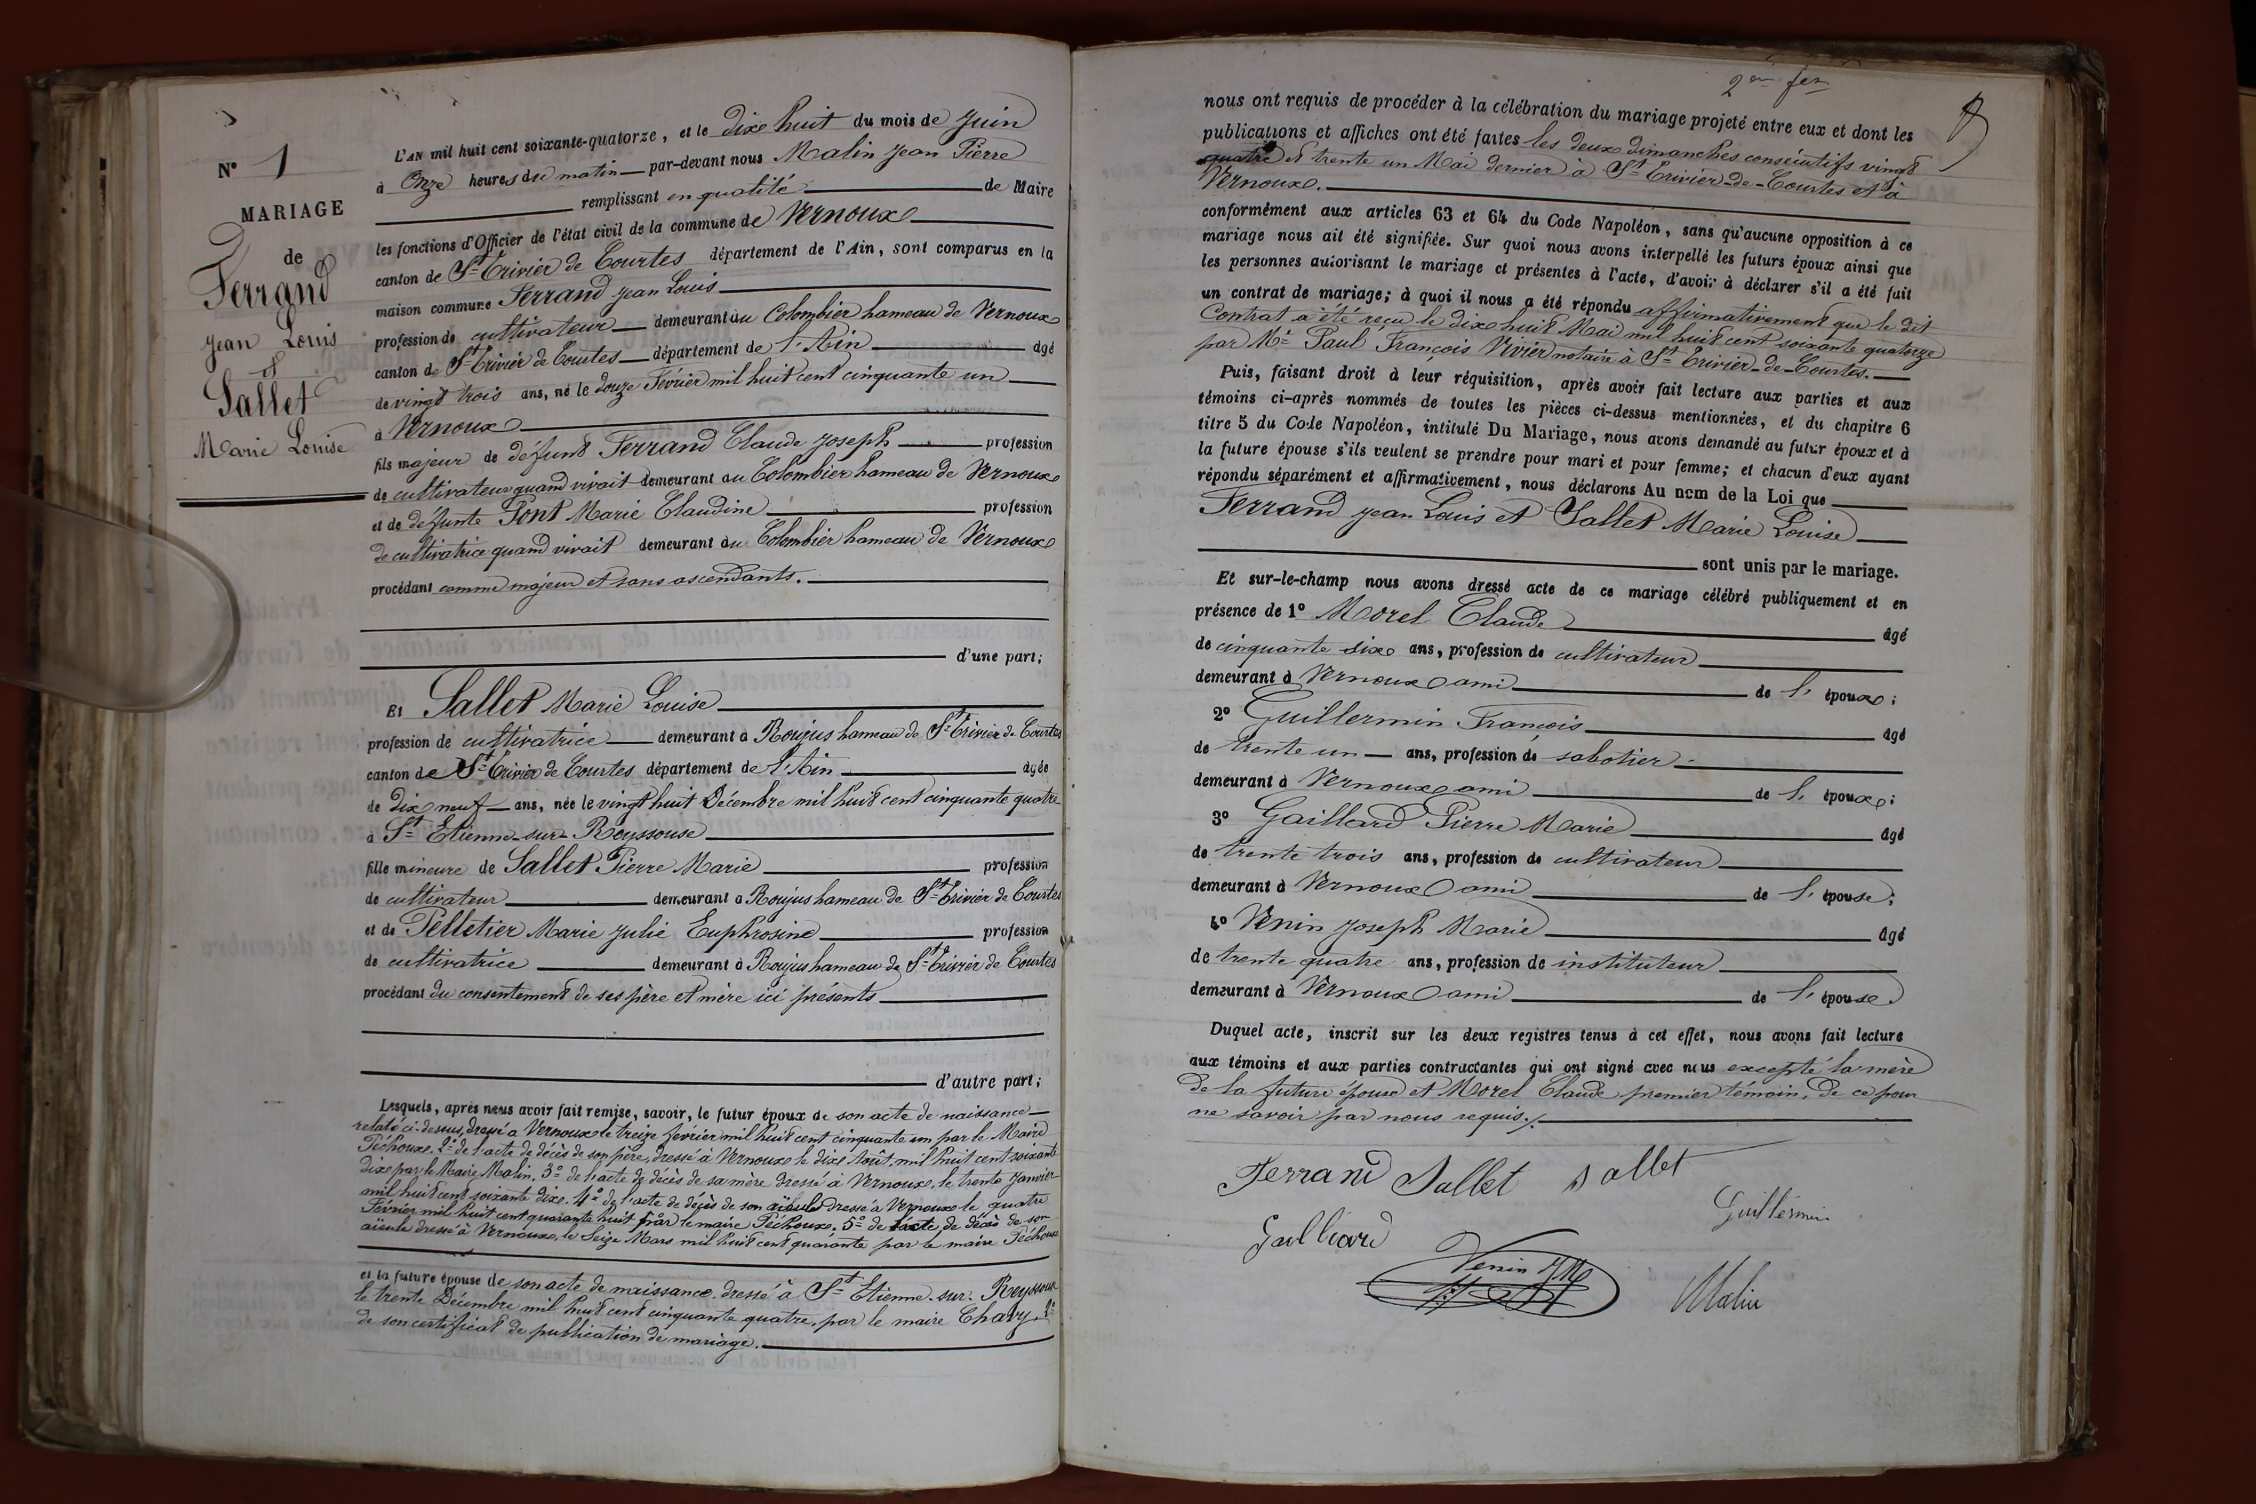 N° 1
MARIAGE
de
Ferrand
Jean Louis
et
Sallet
Marie Louise
L'AN mil huit cent soixante-quatorze, et le dix huit du mois de Juin
à Onze heures du matin par-devant nous Malin Jean Pierre
remplissant en qualité de Maire
les fonctions d'Officier de l'état civil de la commune de Vernoux
canton de St Trivier de Courtes département de l'Ain, sont comparus en la
maison commune Ferrand Jean Louis
profession de cultivateur demeurant au Colombier hameau de Vernoux
canton de St Trivier de Courtes département de l'Ain âgé
de vingt trois ans, né le douze Février mil huit cent cinquante un
à Vernoux
fils majeur de défunt Ferrand Claude Joseph profession
de cultivateur quand vivait demeurant au Colombier hameau de Vernoux
et de défunte Pont Marie Claudine profession
de cultivatrice quand vivait demeurant au Colombier hameau de Vernoux
procédant comme majeur et sans ascendants.
d'une part;
Et Sallet Marie Louise
profession de cultivatrice demeurant à Roujus hameau de St Trivier de Courtes
canton de St Trivier de Courtes département de l'Ain âgée
de dix neuf ans, née le vingt huit Décembre mil huit cent cinquante quatre
à St Etienne-sur-Reyssouse
fille mineure de Sallet Pierre Marie profession
de cultivateur demeurant à Roujus hameau de St Trivier de Courtes
et de Pelletier Marie Julie Euphrosine profession
de cultivatrice demeurant à Roujus hameau de St Trivier de Courtes
procédant du consentement de ses père et mère ici présents
d'autre part;
Lesquels, après nous avoir fait remise, savoir, le futur époux de son acte de naissance
relaté ci-dessus, dressé à Vernoux le treize février mil huit cent cinquante un par le Maire
Péchoux. 2° de l'acte de décès de son père, dressé à Vernoux le dix Août mil huit cent soixante
dix par le Maire Malin. 3° de l'acte de décès de sa mère dressé à Vernoux, le trente Janvier
mil huit cent soixante dix. 4° de l'acte de décès de son aïeul dressé à Vernoux le quatre
Février mil huit cent quarante huit par le maire Péchoux. 5° de l'acte de décès de son
aïeule dressé à Vernoux, le Seize Mars mil huit cent quarante par le maire Péchoux
et la future épouse de son acte de naissance dressé à St Etienne-sur-Reyssouse
le trente Décembre mil huit cent cinquante quatre, par le maire Chavy. 2°
de son certificat de publication de mariage.
2me fer
nous ont requis de procéder à la célébration du mariage projeté entre eux et dont les
publications et affiches ont été faites les deux dimanches consécutifs vingt
quatre et trente un Mai dernier à St Trivier-de-Courtes et à
Vernoux.
conformément aux articles 63 et 64 du Code Napoléon, sans qu'aucune opposition à ce
mariage nous ait été signifiée. Sur quoi nous avons interpellé les futurs époux ainsi que
les personnes autorisant le mariage et présentes à l'acte, d'avoir à déclarer s'il a été fait
un contrat de mariage; à quoi il nous a été répondu affirmativement que le dit
Contrat a été reçu le dix huit Mai mil huit cent soixante quatorze
par Me Paul François Vivier notaire à St Trivier-de-Courtes.
Puis, faisant droit à leur réquisition, après avoir fait lecture aux parties et aux
témoins ci-après nommés de toutes les pièces ci-dessus mentionnées, et du chapitre 6
titre 5 du Code Napoléon, intitulé Du Mariage, nous avons demandé au futur époux et à
la future épouse s'ils veulent se prendre pour mari et pour femme; et chacun d'eux ayant
répondu séparément et affirmativement, nous déclarons Au nom de la Loi que
Ferrand Jean Louis et Sallet Marie Louise
sont unis par le mariage.
Et sur-le-champ nous avons dressé acte de ce mariage célébré publiquement et en
présence de 1° Morel Claude âgé
de cinquante six ans, profession de cultivateur
demeurant à Vernoux ami de l'époux;
2° Guillermin François âgé
de trente un ans, profession de sabotier
demeurant à Vernoux ami de l'époux;
3° Gaillard Pierre Marie âgé
de trente trois ans, profession de cultivateur
demeurant à Vernoux ami de l'épouse;
4° Venin Joseph Marie âgé
de trente quatre ans, profession de instituteur
demeurant à Vernoux ami de l'épouse.
Duquel acte, inscrit sur les deux registres tenus à cet effet, nous avons fait lecture
aux témoins et aux parties contractantes qui ont signé avec nous excepté la mère
de la future épouse et Morel Claude premier témoin, de ce pour
ne savoir par nous requis.
Ferrand Sallet Sallet
Guillermin
Gailliard
Venin JM
Malin